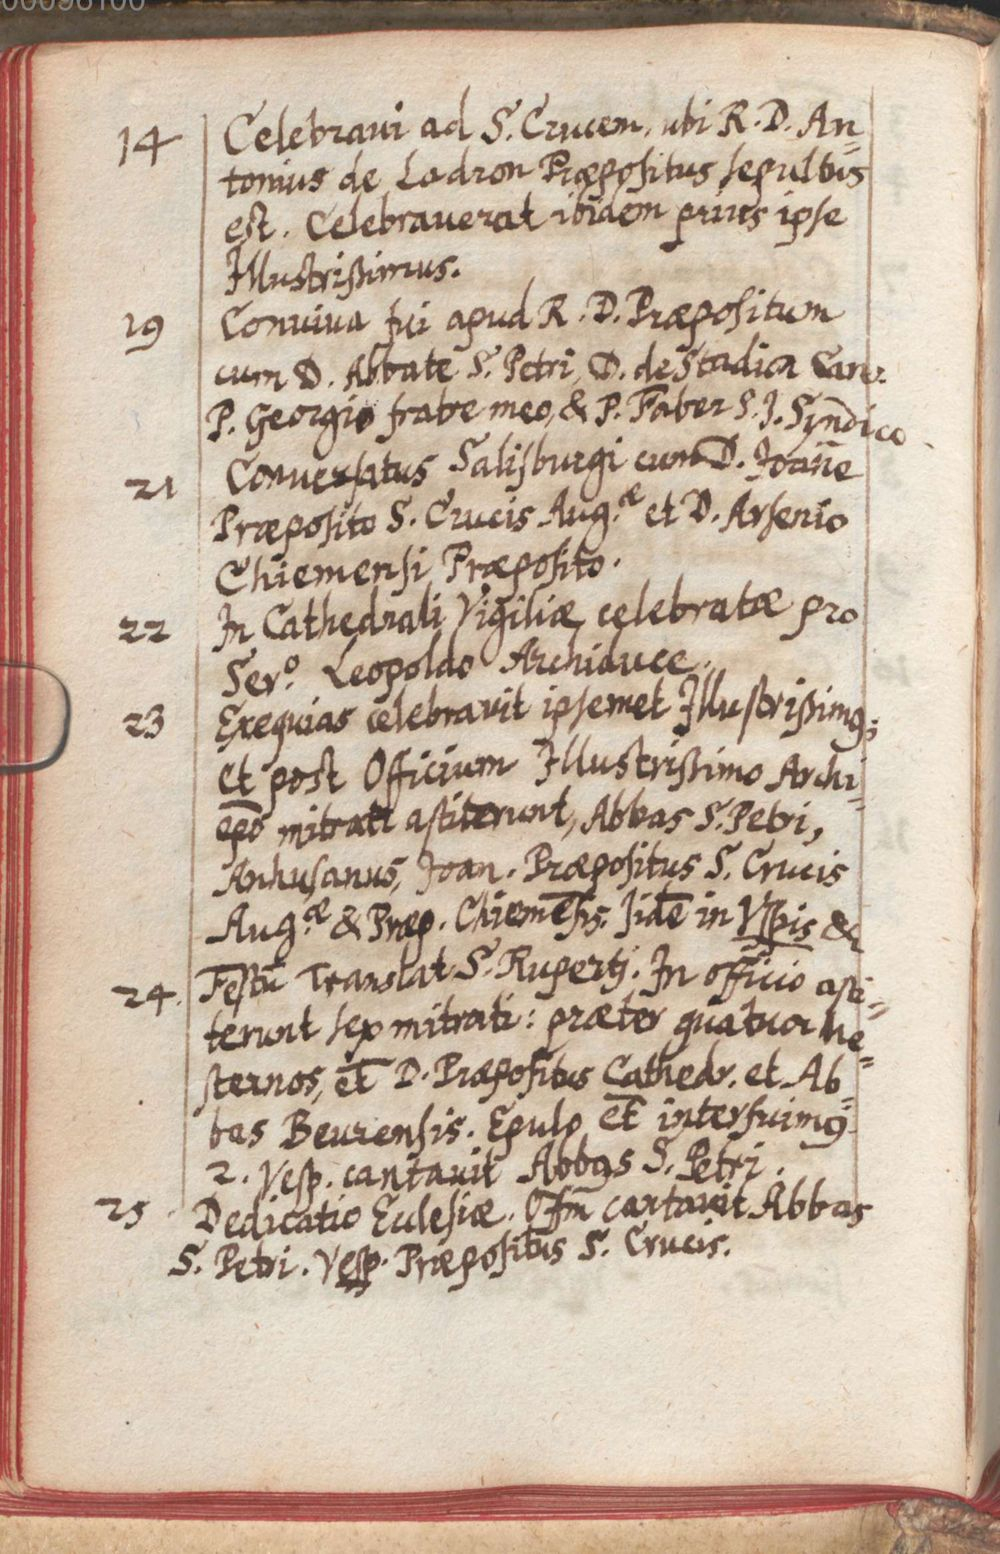 00096100
14 Celebravi ad S. Crucem, ubi R. D. An=
tonius de Lodron Præpositus sepultus
est. Celebraverat ibidem prius ipse
Illustrißimus.
19 Conviva fui apud R. D. Præpositum
cum D. Abbate S. Petri, D. de Stadion Can.
P. Georgio fratre meo, & P. Faber S. J. Syndico
21 Conversatus Salisburgi cum D. Joañe
Præposito S. Crucis Aug.æ et D. Arsenio
Chiemensi Præposito.
22 In Cathedrali Vigiliæ celebratæ pro
Ser.o Leopoldo Archiduce.
23 Exequias celebravit ipsemet Illustrißimq;
Et post Officium Illustrißimo Archi=
epo mitrati astiterunt, Abbas S. Petri,
Anhusanus, Joan. Præpositus S. Crucis
Aug.æ & Præp. Chiemēsis. Iidē in Vspis &c
24. Festū Translat S. Ruperti. In officio asti=
terunt sex mitrati: præter quatuor he=
sternos, et D. Præpositus Cathedr. et Ab=
bas Beurensis. Epulo et interfuimq.
2. Vesp. cantavit Abbas S. Petri.
25 Dedicatio Eclesiæ. Offm cantavit Abbas
S. Petri. Vesp. Præpositus S. Crucis.